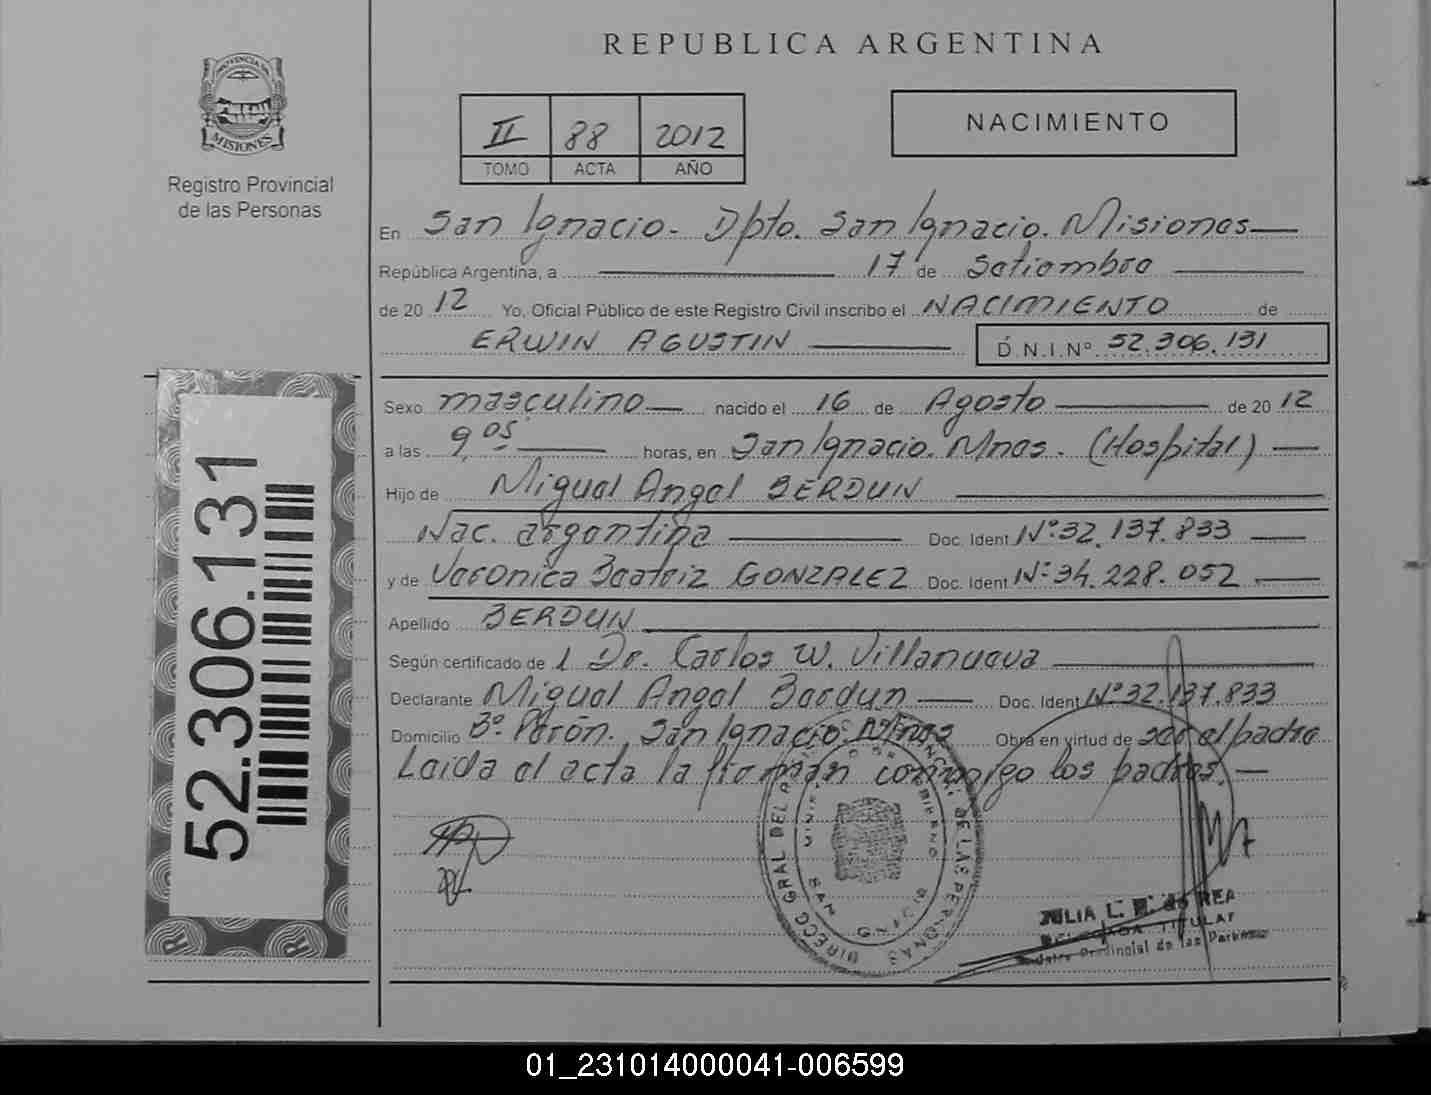 REPUBLICA ARGENTINA
PROVINCIA DE
MISIONES
Registro Provincial
de las Personas
II 88 2012
TOMO ACTA AÑO
NACIMIENTO
En San Ignacio - Dpto. San Ignacio. Misiones
República Argentina, a 17 de Setiembre
de 20 12 Yo, Oficial Público de este Registro Civil inscribo el NACIMIENTO de
ERWIN AGUSTIN D.N.I.Nº 52.306.131
Sexo masculino nacido el 16 de Agosto de 20 12
a las 9,05 horas, en San Ignacio. Mnes. (Hospital)
Hijo de Miguel Angel BERDUN
Nac. argentina Doc. Ident Nº 32.137.833
y de Veronica Beatriz GONZALEZ Doc. Ident Nº 34.228.052
Apellido BERDUN
Según certificado de l Dr. Carlos W. Villanueva
Declarante Miguel Angel Berdun Doc. Ident Nº 32.137.833
Domicilio Bº Perón. San Ignacio. Mnes Obra en virtud de ser el padre
Leida el acta la firman conmigo los padres.
52.306.131
DIRECC GRAL DEL DE LAS PERSONAS
SAN IGNACIO
JULIA L. de REA
DELEGADA TITULAR
Provincial de las Personas
01_231014000041-006599